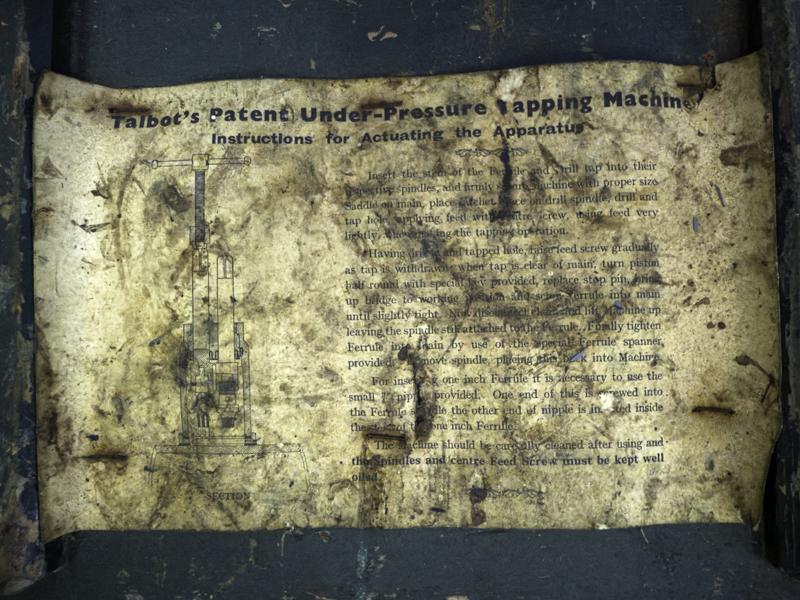 Talbot's Patent Under-Pressure Tapping Machine
Instructions for Actuating the Apparatus
Insert the stem of the Ferrule and Drill tap into their
respective spindles, and firmly secure machine with proper size
Saddle on main, place ratchet on drill spindle, drill and
tap hole, applying feed with centre screw, using feed very
lightly, when the tapping operation.
Having drilled and tapped hole, raise feed screw gradually
as tap is withdrawn, when tap is clear of main, turn piston
half round with special key provided, replace stop pin, bring
up bridge to working position and screw Ferrule into main
until slightly tight. Now disconnect and lift Machine up
leaving the spindle still attached to the Ferrule. Finally tighten
Ferrule into main by use of the special Ferrule spanner
provided. Remove spindle, placing this back into Machine.
For inserting one inch Ferrule it is necessary to use the
small nipple provided. One end of this is screwed into
the Ferrule spindle the other end of nipple is inserted inside
the stem of the one inch Ferrule.
The machine should be carefully cleaned after using and
the Spindles and centre Feed Screw must be kept well
oiled.
SECTION